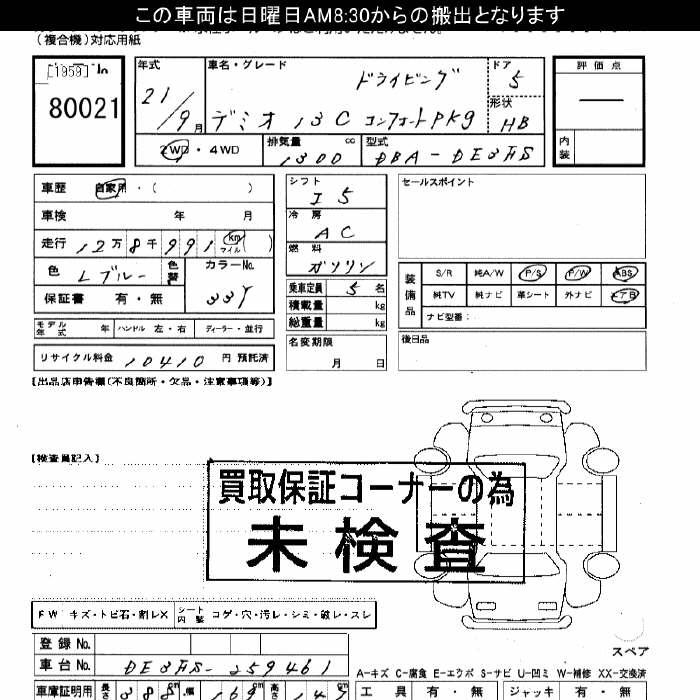 この車両は日曜日AM8:30からの搬出となります
(複合機)対応用紙
[1959] No
80021
年式 21/9月
車名・グレード ドライビング
デミオ 13C コンフォートPKg
ドア 5
形状 HB
評価点
内装
2WD・4WD
排気量 cc 1300
型式 DBA-DE3FS
車歴 自家用・( )
車検 年 月
走行 12万8千991 km マイル ( )
色 Lブルー 色替
カラーNo. 33Y
保証書 有・無
シフト I5
冷房 AC
燃料 ガソリン
乗車定員 5名
積載量 kg
総重量 kg
セールスポイント
装備品 S/R 純A/W P/S P/W ABS
純TV 純ナビ 革シート 外ナビ エアB
ナビ型番:
モデル年式 年 ハンドル 左・右 ディーラー・並行
リサイクル料金 10410 円 預託済
名変期限 月 日
後日品
【出品店申告欄(不良箇所・欠品・注意事項等)】
【検査員記入】
買取保証コーナーの為
未検査
FW キズ・トビ石・割レX シート内装 コゲ・穴・汚レ・シミ・破レ・スレ
登録No.
スペア
車台No. DE3FS-259461
A-キズ C-腐食 E-エクボ S-サビ U-凹ミ W-補修 XX-交換済
車庫証明用 長さ 388 cm 幅 169 cm 高さ 147 cm
工具 有・無 ジャッキ 有・無